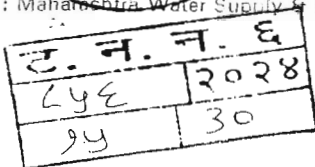 : Maharashtra Water Supply &
ट. न. न. ६
८५६ २०२४
१५ 30